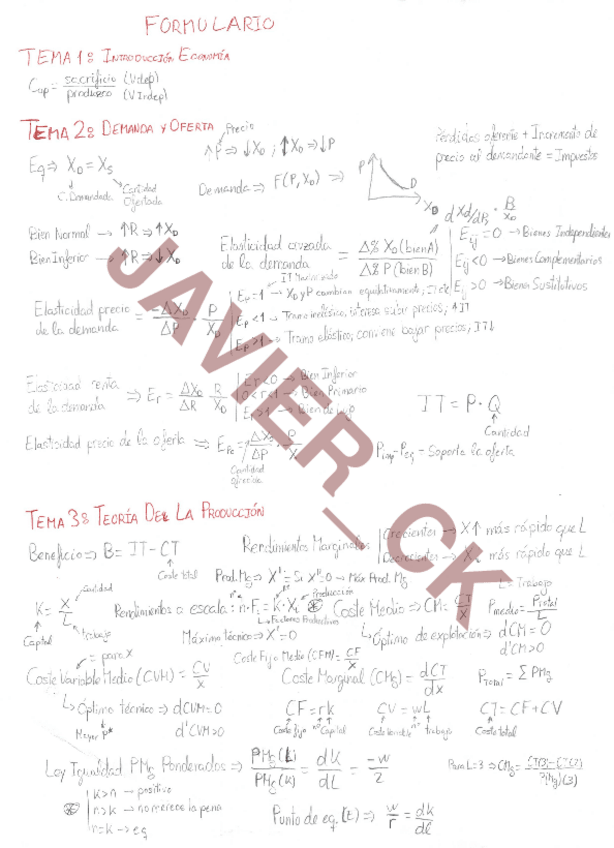 FORMULARIO
TEMA 1: INTRODUCCIÓN ECONOMÍA
Cop = sacrificio (Vdep) / produzco (VIndep)
TEMA 2: DEMANDA Y OFERTA
Precio
↑P ⇒ ↓X₀ ; ↑X₀ ⇒ ↓P
Pérdidas oferente + Incremento de
precio al demandante = Impuestos
Eq ⇒ X₀ = Xs
C. Demandada
Cantidad Ofertada
Demanda ⇒ F(P, X₀) ⇒
P
D
X₀
Bien Normal → ↑R ⇒ ↑X₀
Bien Inferior → ↑R ⇒ ↓X₀
Elasticidad cruzada de la demanda = Δ% X₀ (bien A) / Δ% P (bien B)
Eij = 0 → Bienes Independientes
Eij < 0 → Bienes Complementarios
Eij > 0 → Bienes Sustitutivos
Elasticidad precio de la demanda = -ΔX₀/ΔP · P/X₀
Ep < 1 → Tramo inelástico, interesa subir precios, ↑IT
Ep > 1 → Tramo elástico, conviene bajar precios, IT↓
Elasticidad renta de la demanda ⇒ Er = ΔX₀/ΔR · R/X₀
Er < 0 → Bien Inferior
0 < r < 1 → Bien Primario
Er > 1 → Bien de lujo
IT = P · Q
Cantidad
Elasticidad precio de la oferta
Cantidad ofrecida
Pimp - Peq = Soporta la oferta
TEMA 3: TEORÍA DE LA PRODUCCIÓN
Beneficio ⇒ B = IT - CT
Coste total
Rendimientos Marginales
Crecientes → X↑ más rápido que L
Decrecientes → más rápido que L
Prod. Mg ⇒ X' = Si X'' = 0 → Máx Prod. Mg
L = Trabajo
K = X/L
Cantidad
Capital
trabajo
Rendimientos a escala: n·Fi = k·Xi
producción
Factores Productivos
Coste Medio ⇒ CM = CT/X
Pmedio = Ptotal/L
Máximo técnico ⇒ X' = 0
Óptimo de explotación ⇒ dCM = 0
d'CM > 0
= para X
Coste Variable Medio (CVM) = CV/X
Coste Fijo Medio (CFM) = CF/X
Coste Marginal (CMg) = dCT/dx
PTotal = Σ PMg
Óptimo técnico ⇒ dCVM = 0
d'CVM > 0
Mayor
CF = rk
Coste fijo nº Capital
CV = wL
Coste variable nº trabajo
CT = CF + CV
Coste total
Ley Igualdad PMg Ponderados ⇒ PMg(L)/PMg(k) = dk/dL = -w/2
Para L=3 ⇒ CMg =
k > n → positivo
n > k → no merece la pena
n = k → eq
Punto de eq. (E) ⇒ w/r = dk/dl
JAVIER_CK